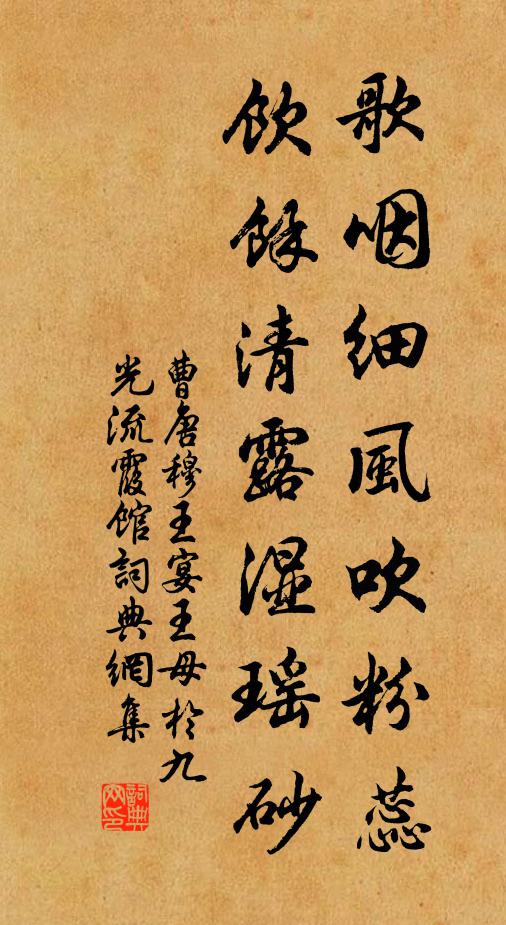 歌咽細風吹粉蕊
飲餘清露濕瑶砂
曹唐穆王宴王母於九
光流霞館詞典網集
詞典
网印